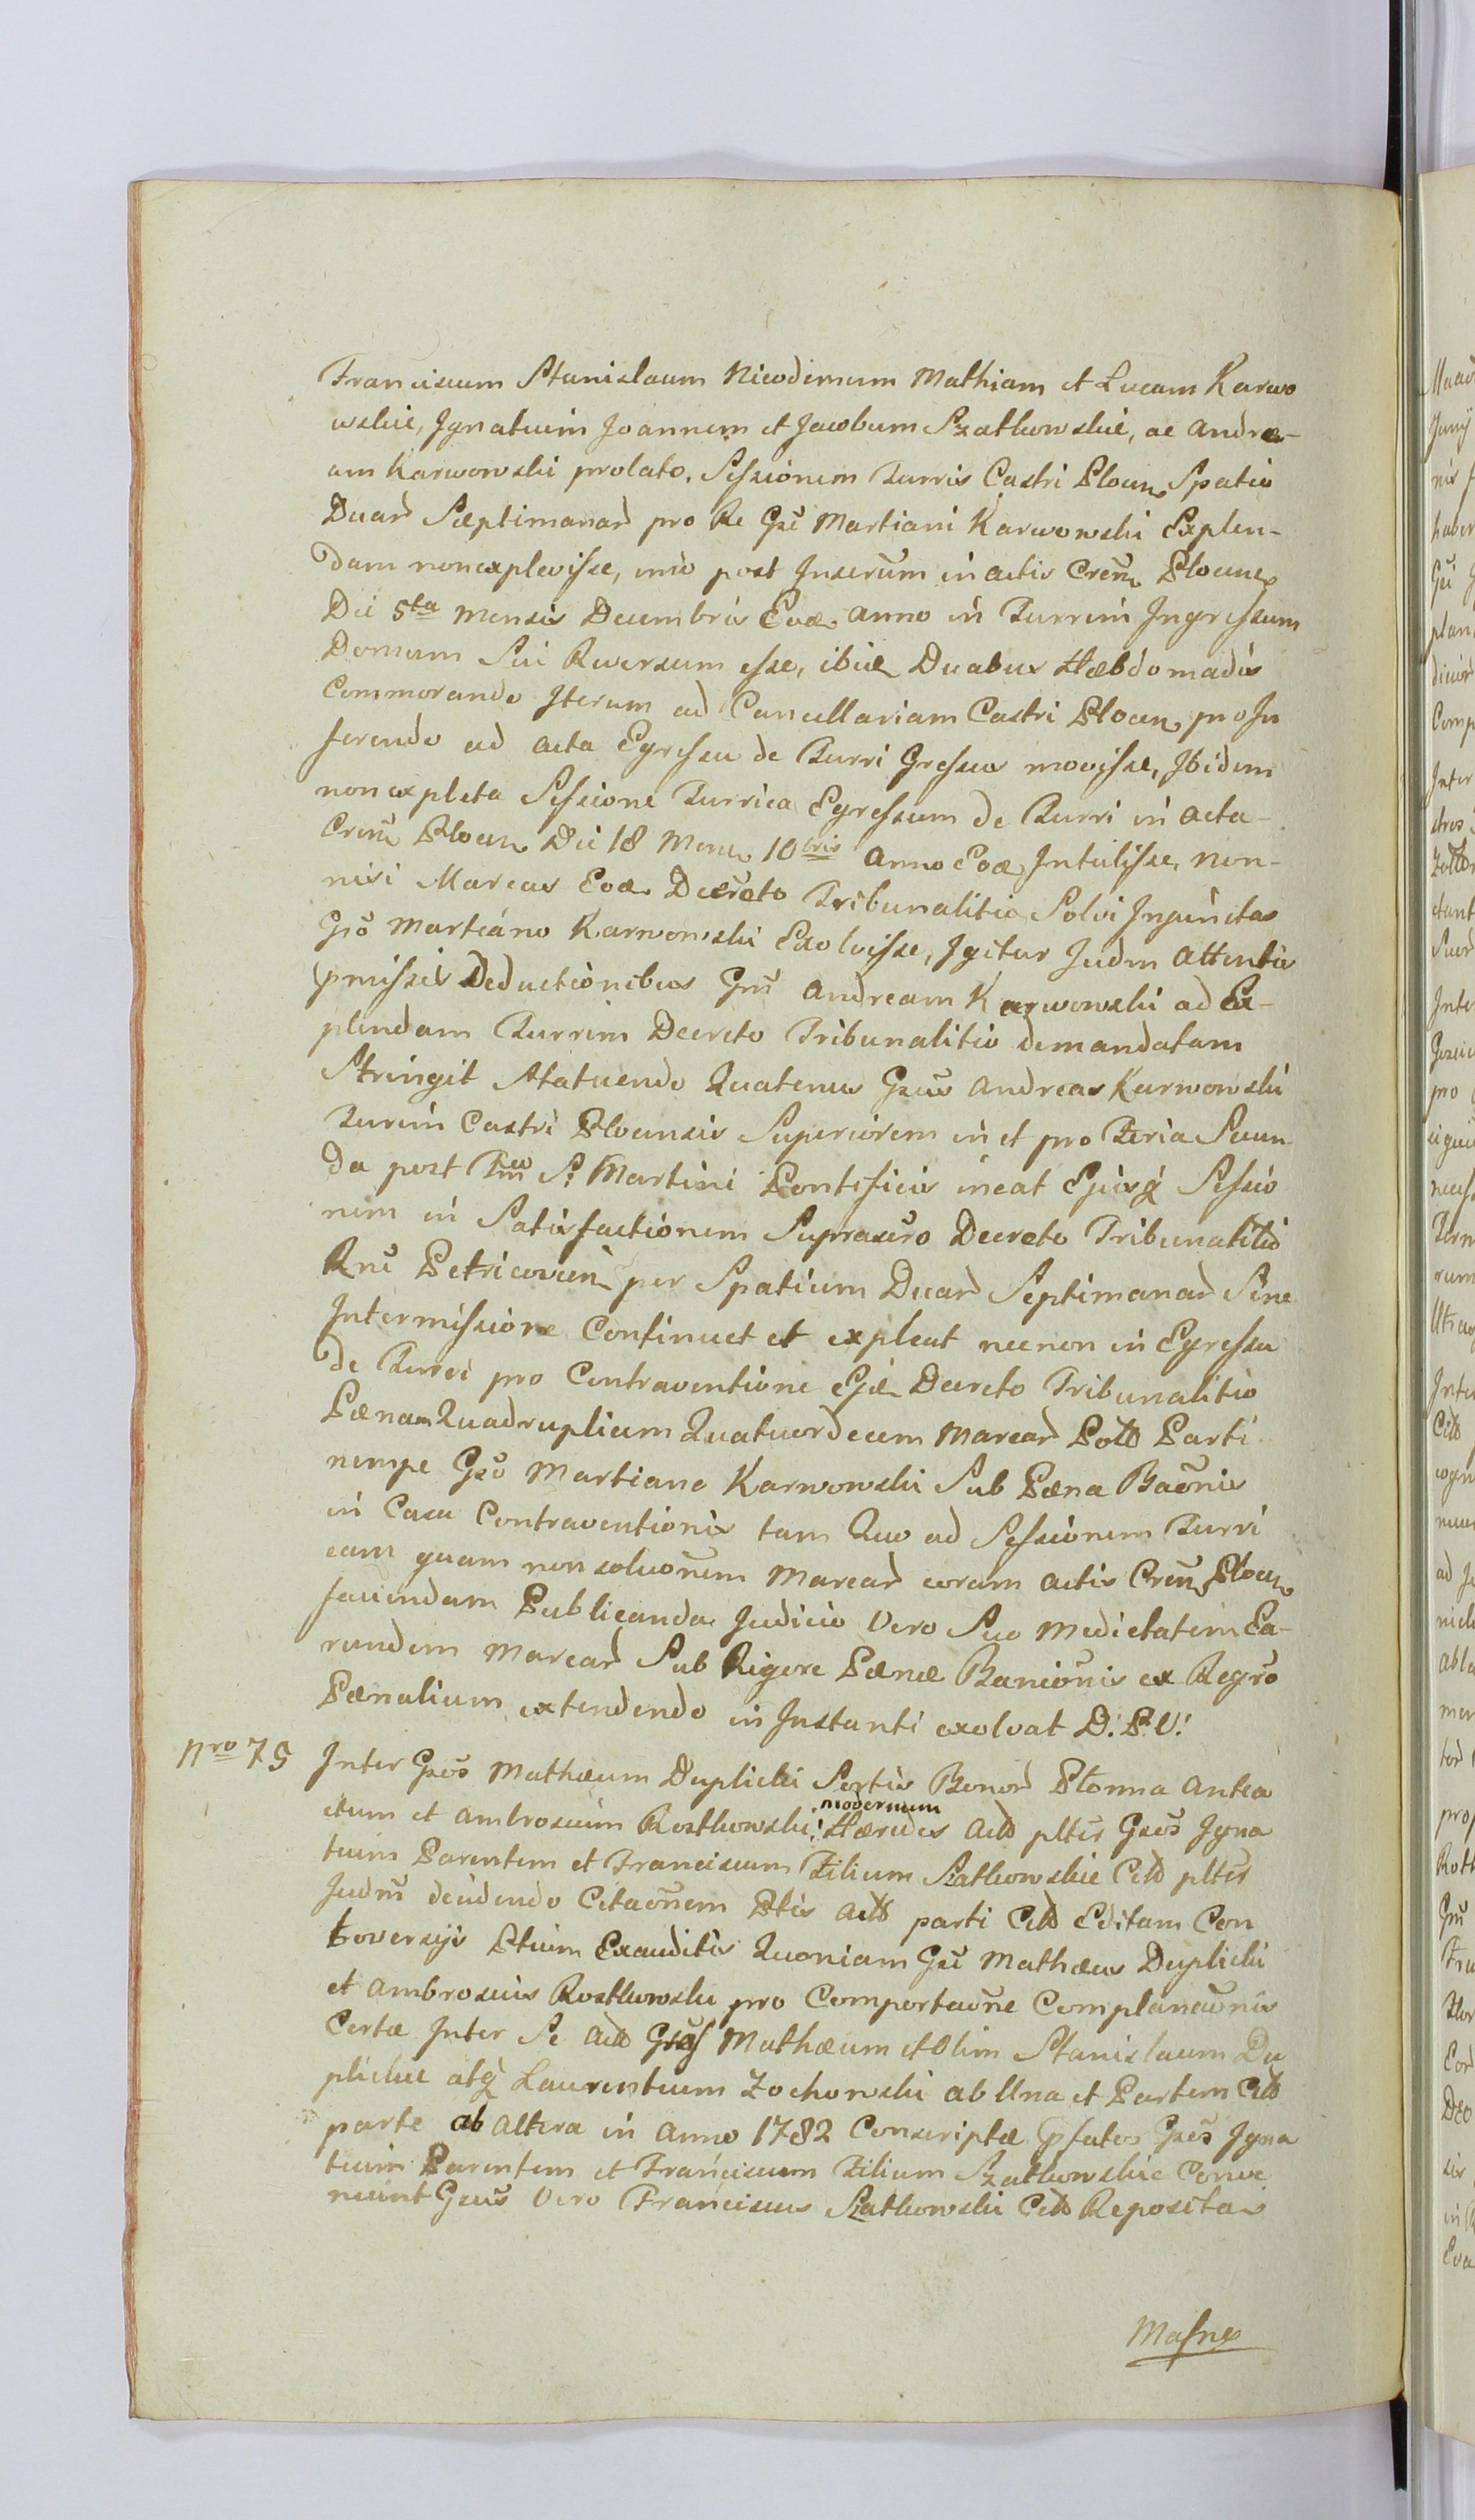 Franciscum Stanislaum Nicodemum Mathiam et Lucam Karwo
wskie, Jgnatium Joannem et Jacobum Szatkowskie, ac Andre-
am Karwowski prolato, Sessionem Turris Castri Plocen Spatio
Duar Septimanar pro Re Gsi Martiani Karwowski Explen-
dam non explevisse, imo post Inserum in actis Cren Plocen
Die 5ta Mensis Decembris Eoae Anno in Turrim Ingressum
Domum Sui Reversum esse, ibiq Duabus Hæbdomadis
Commorando Jterum ad Cancellariam Castri Plocen pro In
ferendo ad acta Egressu de Turri Gressus movisse, Jbidem
non expleta Sessione Turrica Egressum de Turri in acta
Cren Plocen Die 18 Mens 10bris Anno Eoæ Intulisse, non-
nisi Marcas Eoæ Decreto Tribunalitio Solvi Injunctas
Gso Martiano Karwowski Exolvisse, Jgitur Judm Attentis
pmissis Deductionibus Gsm Andream Karwowski ad Ex-
plendam Turrim Decreto Tribunalitio demandatam
Stringit Statuendo Quatenus Gsus Andreas Karwowski
Turim Castri Plocensis Superiorem in et pro Feria Secun
da post Fm S. Martini Pontificis ineat Ejusq Sessio
nem in Satisfactionem Suprascro Decreto Tribunalitio
Rni Petricovien per Spatium Duar Septimanar Sine
Intermissione Continuet et expleat necnon in Egressu
de Turri pro Contraventione Ejæ Decreto Tribunalitio
Pænam Quadruplicem Quatuordecem Marcar Poll Parti
nempe Gso Martiano Karwowski Sub Pæna Baõnis
in Casu Contraventionis tam Quo ad Sessionem Turri
cam quam non solvoñem Marcar coram Actis Cren Plocen
faciendam Publicanda Judicio Vero Suo Medietatem Ea-
rundem Marcar Sub Rigore Pænæ Banniõnis ex Regro
Pænalium extendendo in Instanti exolvat D. P. V.
Nro 75 Inter Gsos Mathæum Duplicki Sortis Bonor Plonna Antea
ctum et Ambrosium Rostkowski modernum Hæredes Acto pltes Gsos Jgna
tium Parentem et Franciscum Filium Szatkowskie Citt pltes
Judm decidendo Citaoñem Ptis Acto parti Citt Editam Con
troversijs Ptium Exauditis Quoniam Gsi Mathæus Duplicki
et Ambrosius Rostkowski pro Comportaõne Complanaõnis
Certæ Inter Se Acto Gsos Mathæum et Olim Stanislaum Du
plickie atq Laurentium Zochowski ab Una et Partem Citt
parte ab Altera in Anno 1782 Conscriptæ Pfatos Gsos Jgna
tium Parentem et Franciscum Filium Szatkowskie Conve
niunt Gsus Vero Franciscus Szatkowski Citt Reposita